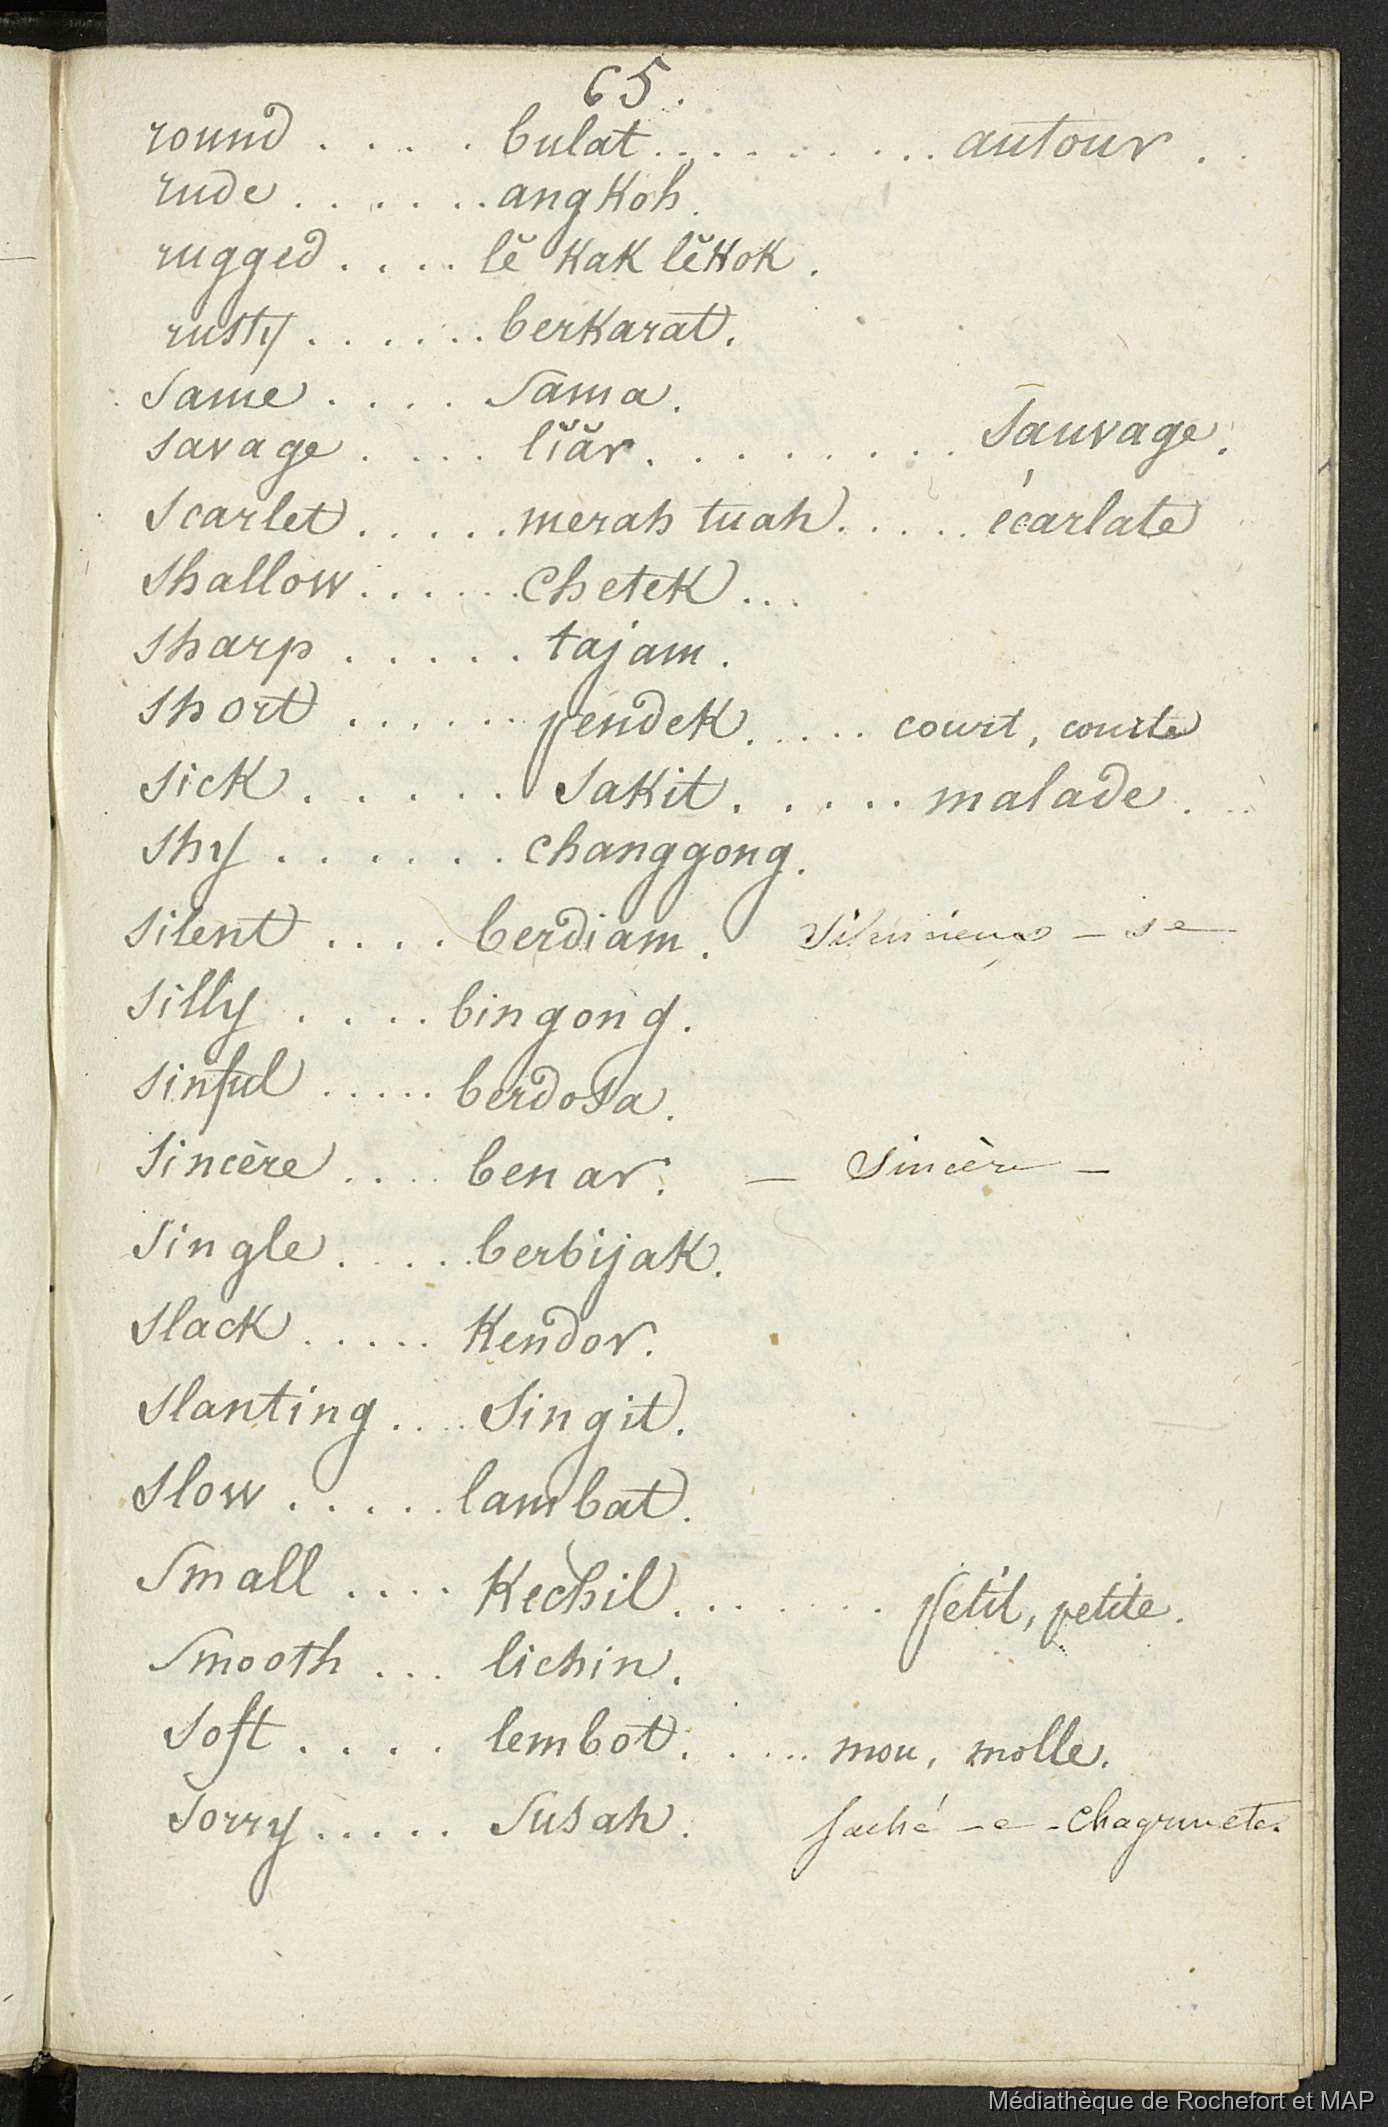 65.
round . . . . bulat . . . . . . . . . autour . .
rude . . . . . . angkoh.
rugged . . . . lĕ kak lĕkok.
rusty . . . . . . berkarat.
same . . . . sama.
savage . . . . lĭăr. . . . . . . . . sauvage.
scarlet . . . . . merah tuah . . . . . écarlate
shallow . . . . . . chetek . . .
sharp . . . . . tajam.
short . . . . . . pendek. . . . . court, courte
sick . . . . . sakit. . . . . malade. . .
shy . . . . . . changgong.
silent . . . . berdiam. silencieux - se
silly . . . . bingong.
sinful . . . . . berdosa.
sincère . . . . benar. - sincère -
single . . . . . berbijak.
slack . . . . . kendor.
slanting . . . . singit.
slow . . . . . lambat.
small . . . . kechil. . . . . . . petit, petite.
smooth . . . lichin.
soft . . . . lembot. . . . . . mou, molle.
sorry . . . . . susah. faché - e -
Médiathèque de Rochefort et MAP